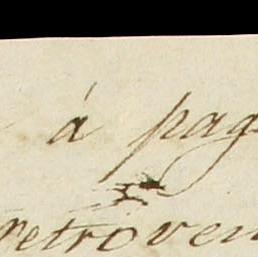 á pag
retroven